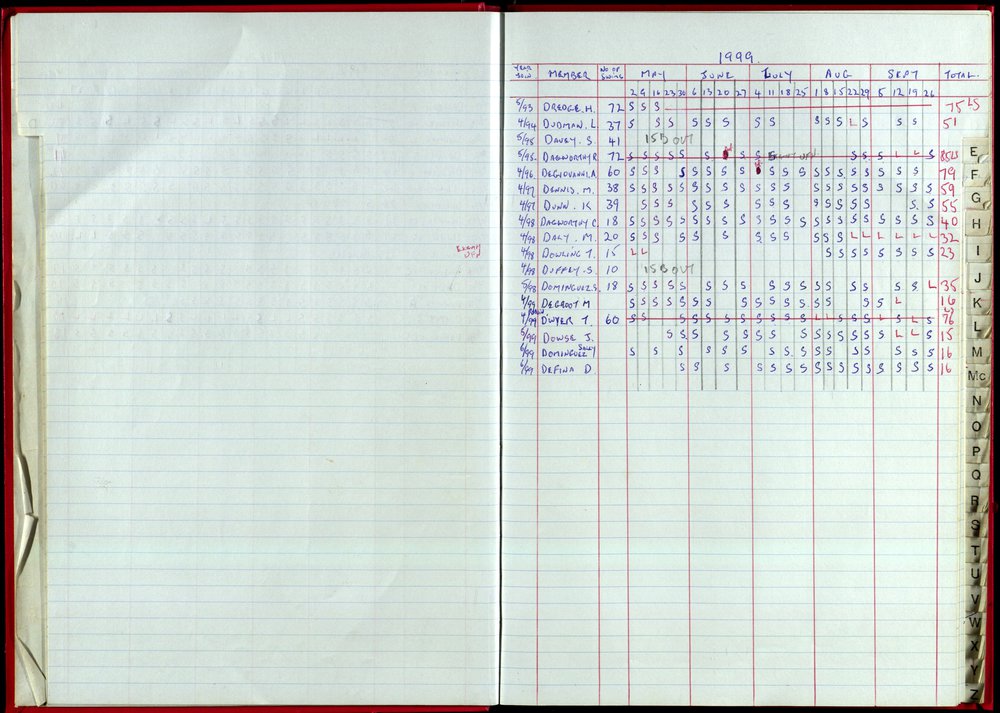 1999
YEAR JOIN MEMBER NO OF SWIMS MAY JUNE JULY AUG SEPT TOTAL
2 9 16 23 30 6 13 20 27 4 11 18 25 1 8 15 22 29 5 12 19 26
5/93 DREDGE. H. 72 S S S 75 LS
4/94 DUDMAN. L 37 S S S S S S S S S S S L S S S 51
5/95 DAVEY. S. 41 ISB OUT
5/95 DAGWORTHY R. 72 S S S S S S S S S S S L L S 85LS
4/96 DEGIOVANNI. A 60 S S S S S S S S S S S S S S S S S S S S 79
4/97 DENNIS. M. 38 S S S S S S S S S S S S S S S S S S S S S 59
4/97 DUNN. K 39 S S S S S S S S S S S S S S S S 55
4/98 DAGWORTHY C. 18 S S S S S S S S S S S S S S S S S S S S S S 40
4/98 DALY. M. 20 S S S S S S S S S S S S L L L L L L 32
EXEMP
4/98 DOWLING T. 15 L L S S S S S S S S 23
4/98 DUFFEY. S. 10 ISB OUT
5/98 DOMINGUEZ. S. 18 S S S S S S S S S S S S S S S S S L 35
4/99 DEGROOT M S S S S S S S S S S S S S S S S L 16
4/99 DWYER T. 60 S S S S S S S S S S L L S S S L S L S 76
5/99 DOWSE J. S S S S S S S S S S S S S L L S 15
6/99 DOMINGUEZ SALLY S S S S S S S S S S S S S S S S 16
6/99 DEFINA D S S S S S S S S S S S S S S S 16
E
F
G
H
I
J
K
L
M
Mc
N
O
P
Q
R
S
T
U
V
W
X
Y
Z